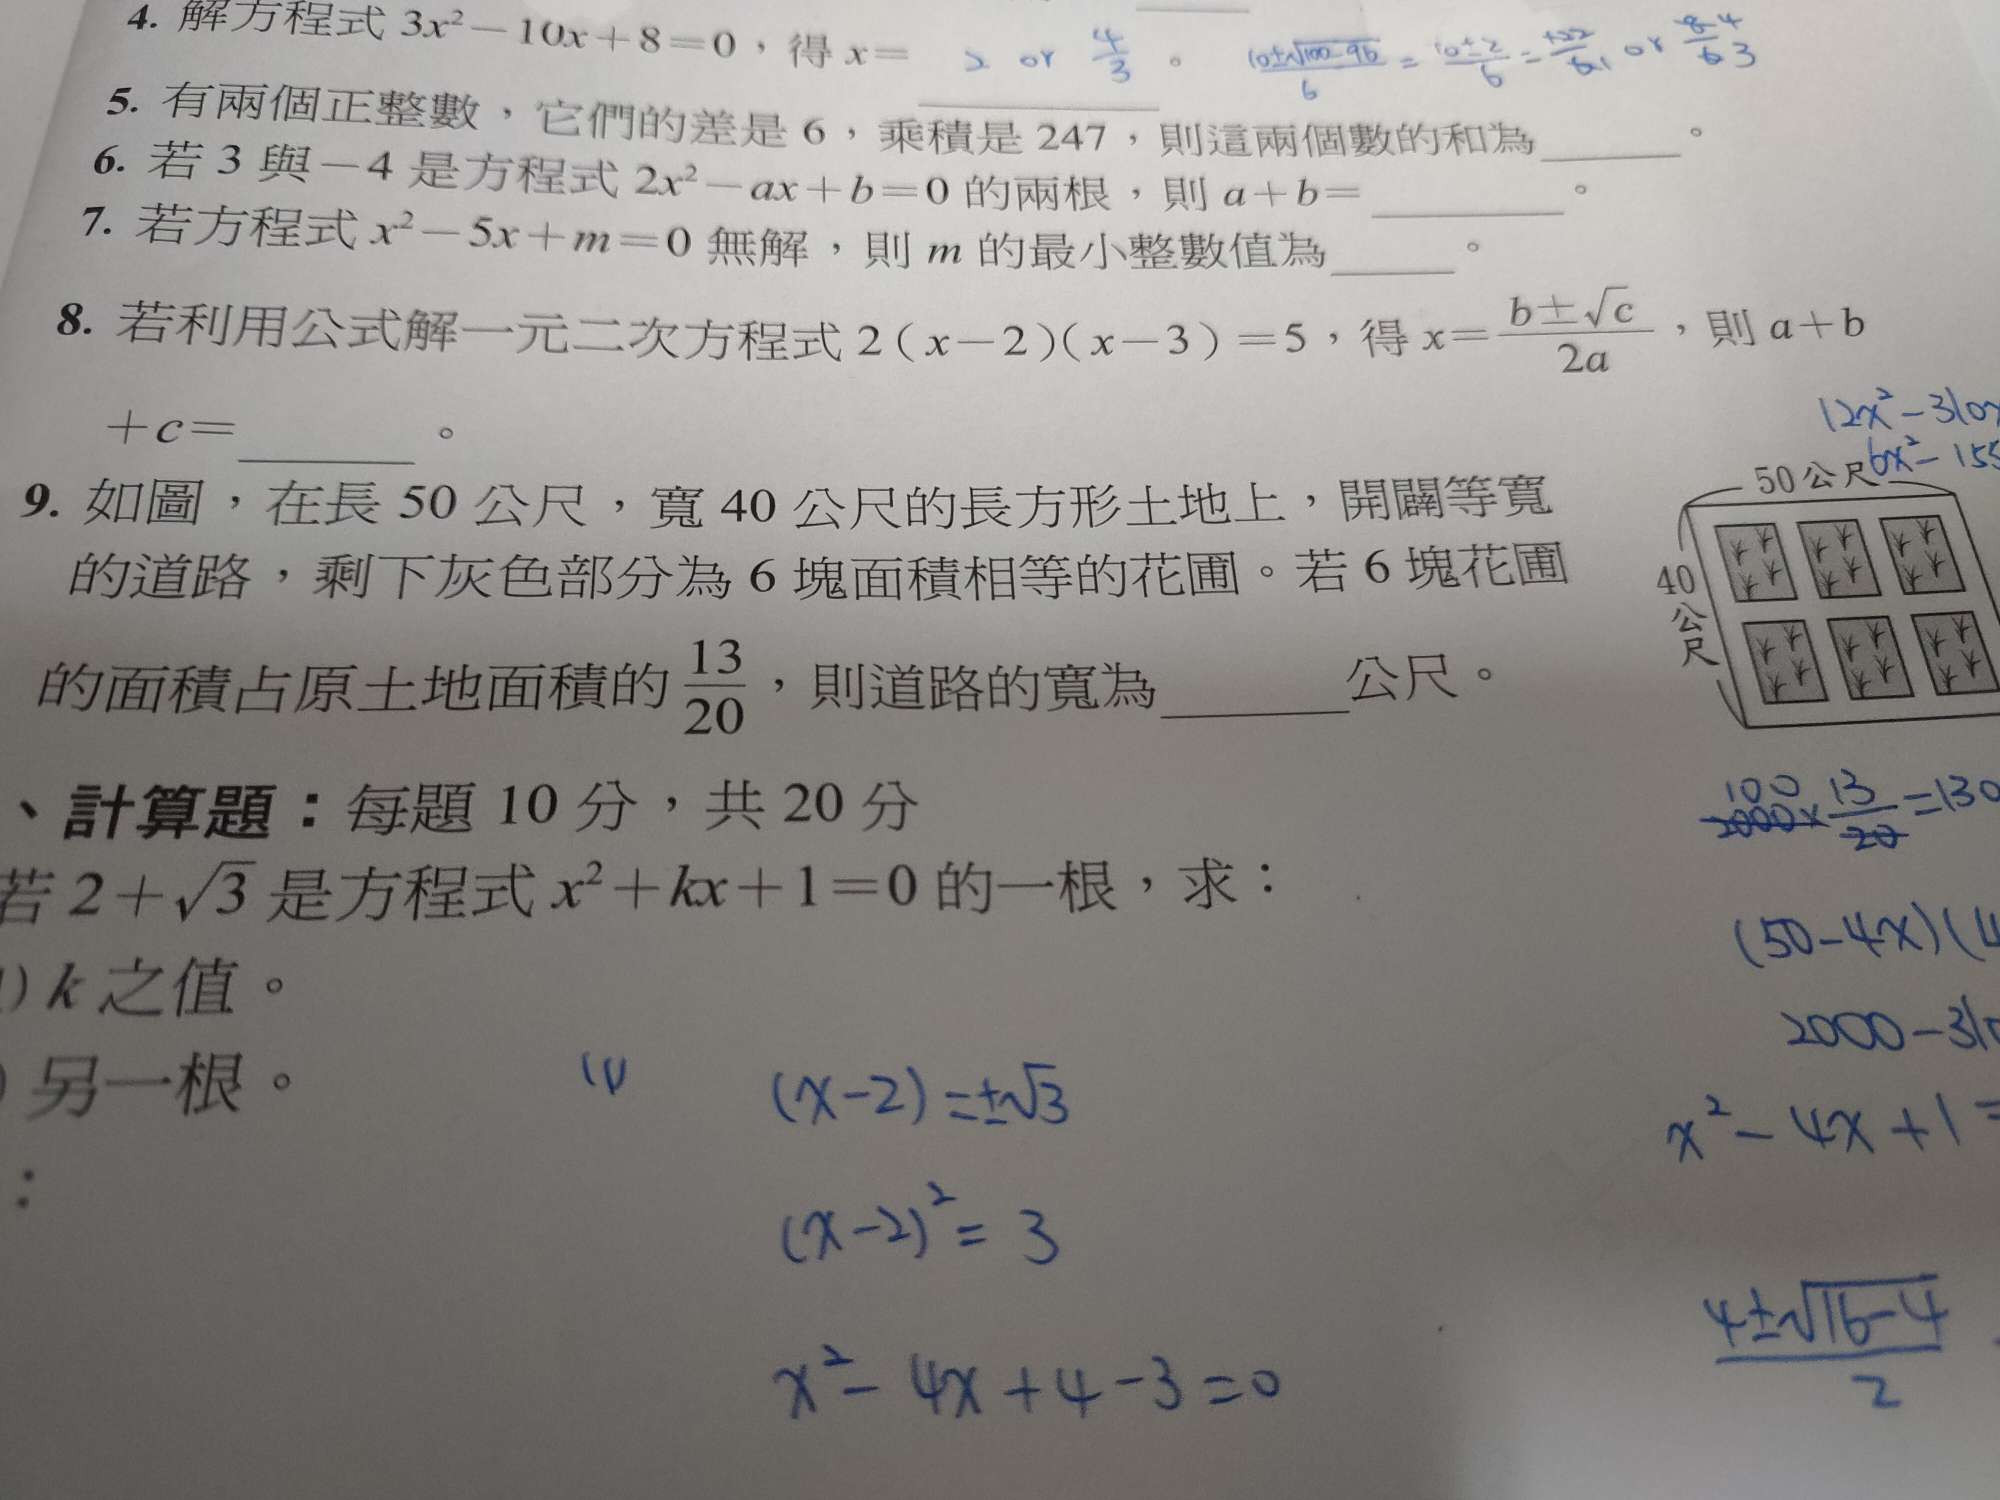 4. 解方程式 3x²－10x＋8＝0，得 x＝ 2 or 4/3 。 (10±√100-96)/6 = (10±2)/6 = or
5. 有兩個正整數，它們的差是 6，乘積是 247，則這兩個數的和為______。
6. 若 3 與－4 是方程式 2x²－ax＋b＝0 的兩根，則 a＋b＝______。
7. 若方程式 x²－5x＋m＝0 無解，則 m 的最小整數值為______。
8. 若利用公式解一元二次方程式 2（x－2）（x－3）＝5，得 x＝(b±√c)/2a，則 a＋b
＋c＝______。
12x²-310x
6x²-155
50公尺
9. 如圖，在長 50 公尺，寬 40 公尺的長方形土地上，開闢等寬
的道路，剩下灰色部分為 6 塊面積相等的花圃。若 6 塊花圃
的面積占原土地面積的 13/20，則道路的寬為______公尺。
40公尺
100
2000×13/20=130
、計算題：每題 10 分，共 20 分
若 2＋√3 是方程式 x²＋kx＋1＝0 的一根，求：
(50-4x)(4
) k 之值。
2000-310
) 另一根。
(1) (x-2)=±√3
x²-4x+1=
：
(x-2)²=3
(4±√16-4)/2
x²-4x+4-3=0